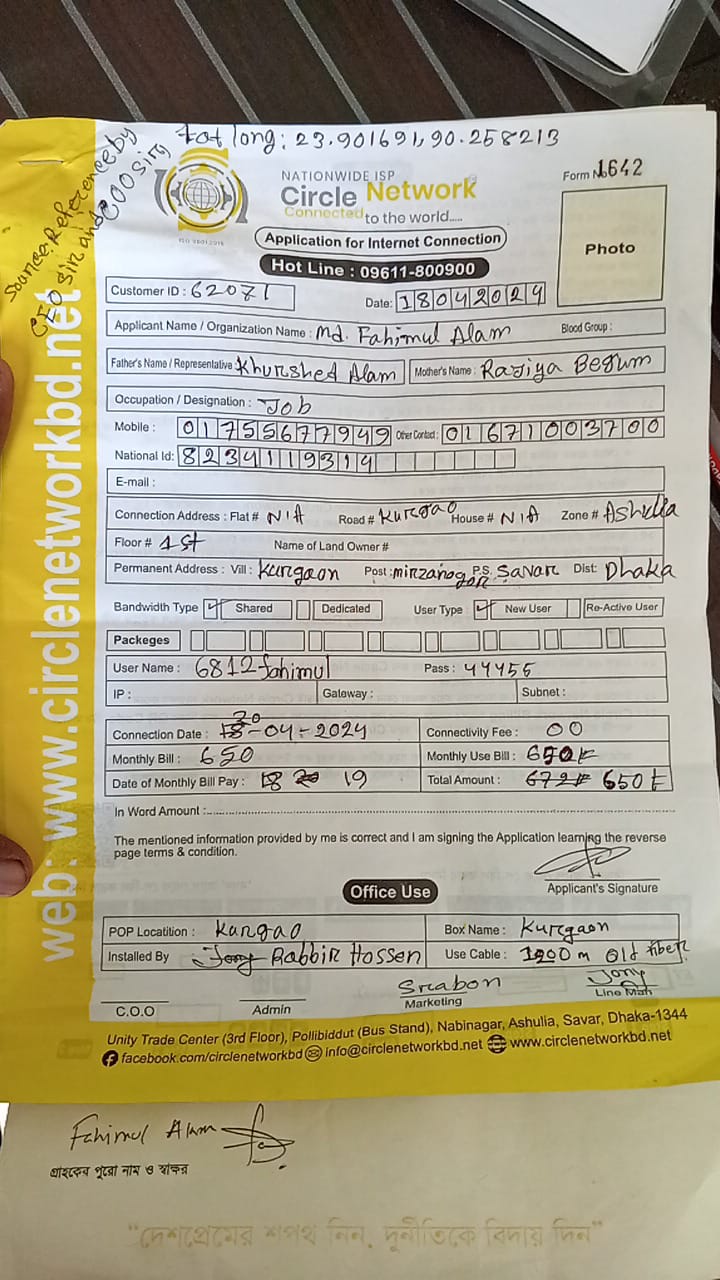 Lat long: 23.901691, 90.258213
Source: Reference by
CEO Sir and COO Sir
NATIONWIDE ISP
Circle Network
Connected to the world.....
ISO 9001:2015
Form No 1642
Photo
Application for Internet Connection
Hot Line : 09611-800900
Customer ID : 62071
Date: 18042024
Applicant Name / Organization Name : Md. Fahimul Alam Blood Group :
Father's Name / Representative : Khurshed Alam Mother's Name : Raziya Begum
Occupation / Designation : Job
Mobile : 01755677949 Other Contact : 01671003700
National Id: 8234119314
E-mail :
Connection Address : Flat # N/A Road # Kurgao House # N/A Zone # Ashulia
Floor # 1st Name of Land Owner #
Permanent Address : Vill : Kurgaon Post : mirzanagor P.S. Savar Dist: Dhaka
Bandwidth Type ✓ Shared Dedicated User Type ✓ New User Re-Active User
Packeges
User Name : 6812fahimul Pass : 44455
IP : Gateway : Subnet :
Connection Date : 18 20-04-2024 Connectivity Fee : 00
Monthly Bill : 650 Monthly Use Bill : 650 t
Date of Monthly Bill Pay : 18 20 19 Total Amount : 672 t 650 t
In Word Amount :
The mentioned information provided by me is correct and I am signing the Application learning the reverse
page terms & condition.
Applicant's Signature
Office Use
POP Locatition : Kurgao Box Name : Kurgaon
Installed By Jony Rabbir Hossen Use Cable : 1200 m Old fiber
C.O.O Admin Srabon Marketing Jony Line Man
Unity Trade Center (3rd Floor), Pollibiddut (Bus Stand), Nabinagar, Ashulia, Savar, Dhaka-1344
facebook.com/circlenetworkbd info@circlenetworkbd.net www.circlenetworkbd.net
web: www.circlenetworkbd.net
Fahimul Alam
গ্রাহকের পুরো নাম ও স্বাক্ষর
"দেশপ্রেমের শপথ নিন, দুর্নীতিকে বিদায় দিন"